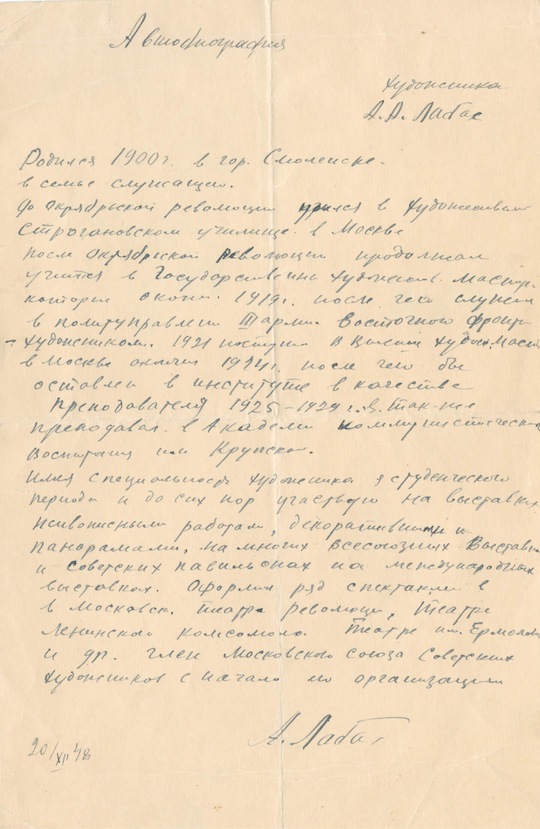 Автобиография
художника
А.А. Лабас
Родился 1900 г. в гор. Смоленске.
в семье служащих.
до октябрьской революции учился в Художественном
Строгановском училище в Москве
после октябрьской революции продолжал
учится в Государственных Художеств. Мастер.
которые оконч. 1919 г. после чего служил
в политуправлении III армии Восточного фронта
художником. 1921 поступил в Высшие Худож. Маст.
в Москве окончил 1924 г. после чего был
оставлен в институте в качестве
преподавателя 1925–1929 г. так-же
преподавал в Академии коммунистическ
воспитания им Крупской.
Имея специальность художника я студенческого
периода и до сих пор участвую на выставках
живописными работами, декоративными и
панорамами, на многих всесоюзных выставках
и советских павильонах на международных
выставках. Оформил ряд спектаклей в
в Московск. театре революции, Театре
Ленинского комсомола. Театре им. Ермоловой
и др. член Московского союза Советских
художников с начала его организации
А. Лабас
20/XII 48